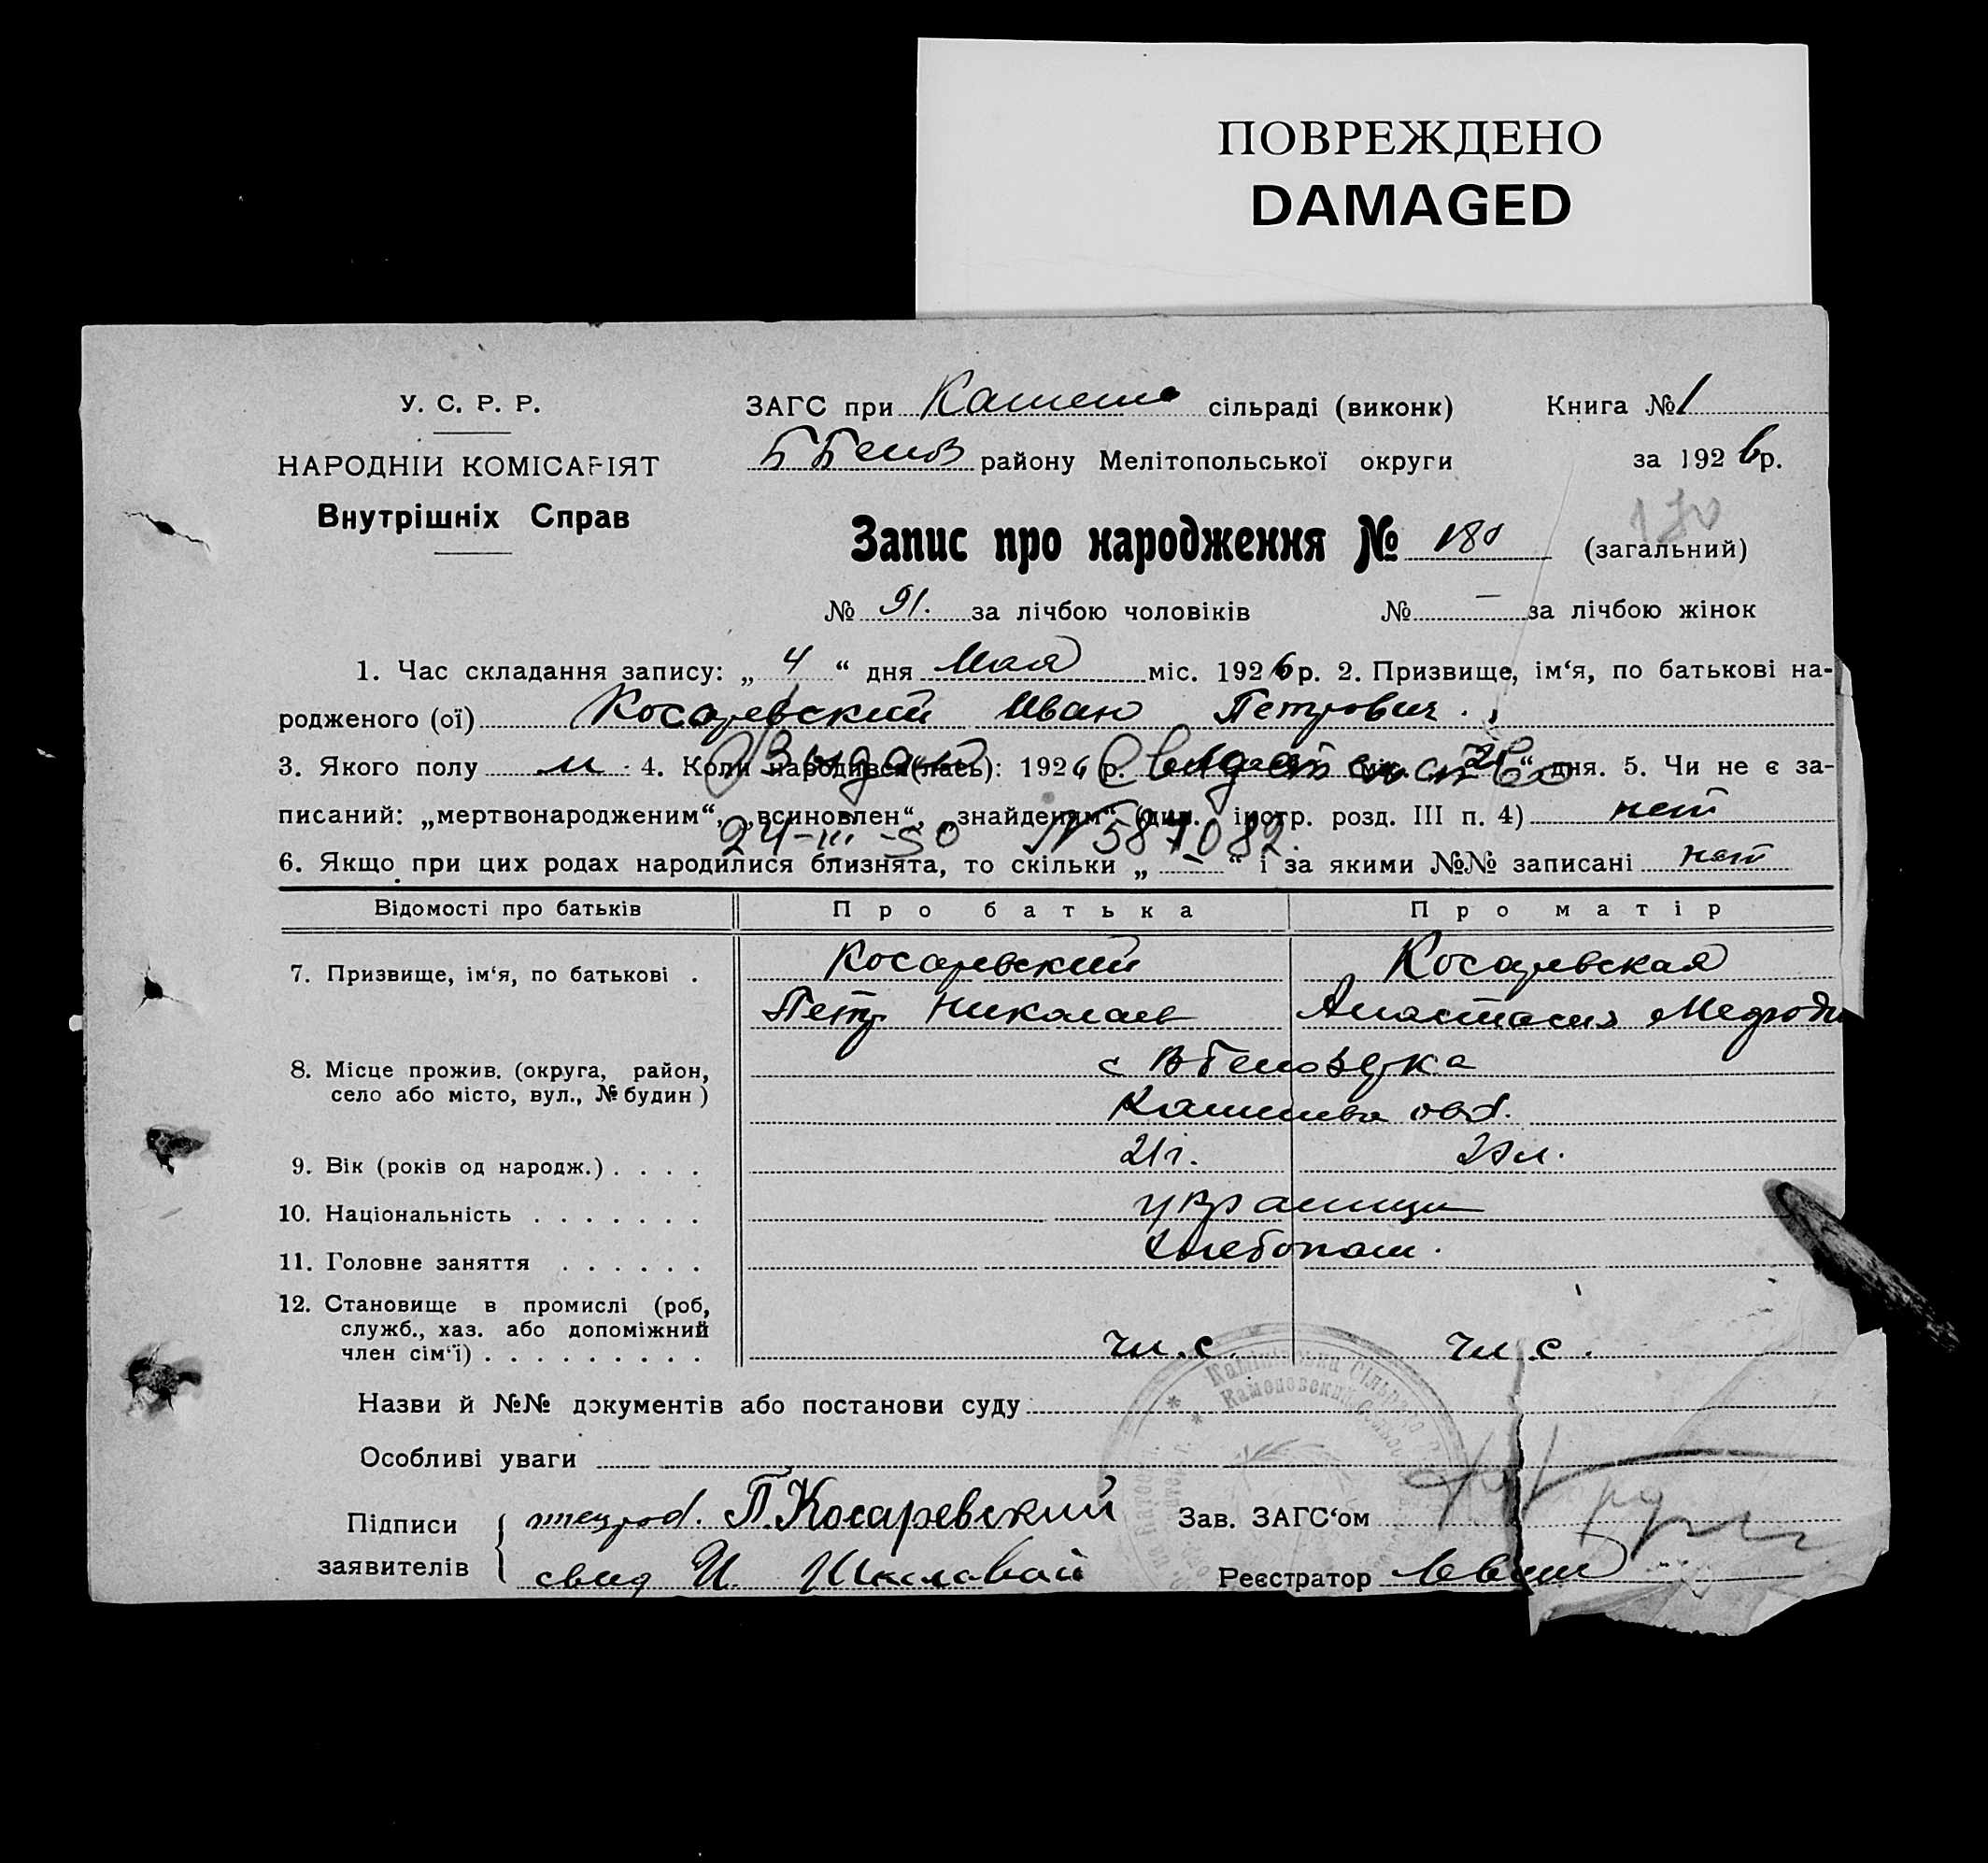 ПОВРЕЖДЕНО
DAMAGED
У. С. Р. Р.
НАРОДНІЙ КОМІСАРІЯТ
Внутрішніх Справ
ЗАГС при сільраді (виконк) Книга № 1
району Мелітопольської округи за 1926 р.
Запис про народження № 180 (загальний)
№ 91. за лічбою чоловіків № — за лічбою жінок
1. Час складання запису: „ 4 “ дня Мая міс. 1926 р. 2. Призвище, ім‘я, по батькові на-
родженого (ої) Косаревский Иван Петрович.
3. Якого полу м 4. Коли народився(лась): 1926 р. міс. „ 21 “ дня. 5. Чи не є за-
Выдано Свидетельство
писаний: „мертвонародженим“, „всиновлен“, „знайденим“ (див. інстр. розд. III п. 4) нет
24-III-50 № 587082.
6. Якщо при цих родах народилися близнята, то скільки „ — “ і за якими №№ записані нет
Відомості про батьків Про батька Про матір
7. Призвище, ім‘я, по батькові . Косаревский Косаревская
Петр Николаев Анастасия
8. Місце прожив. (округа, район, село або місто, вул., № будин)
9. Вік (років од народж.) . . . . 21 г.
10. Національність . . . . . . . украинцы
11. Головне заняття . . . . . . хлебопаш.
12. Становище в промислі (роб, служб., хаз. або допоміжний член сім‘ї) . . . . . . . . . чл. с. чл. с.
Назви й №№ документів або постанови суду
Особливі уваги
Підписи заявителів П. Косаревский Зав. ЗАГС‘ом
свид И. Реєстратор